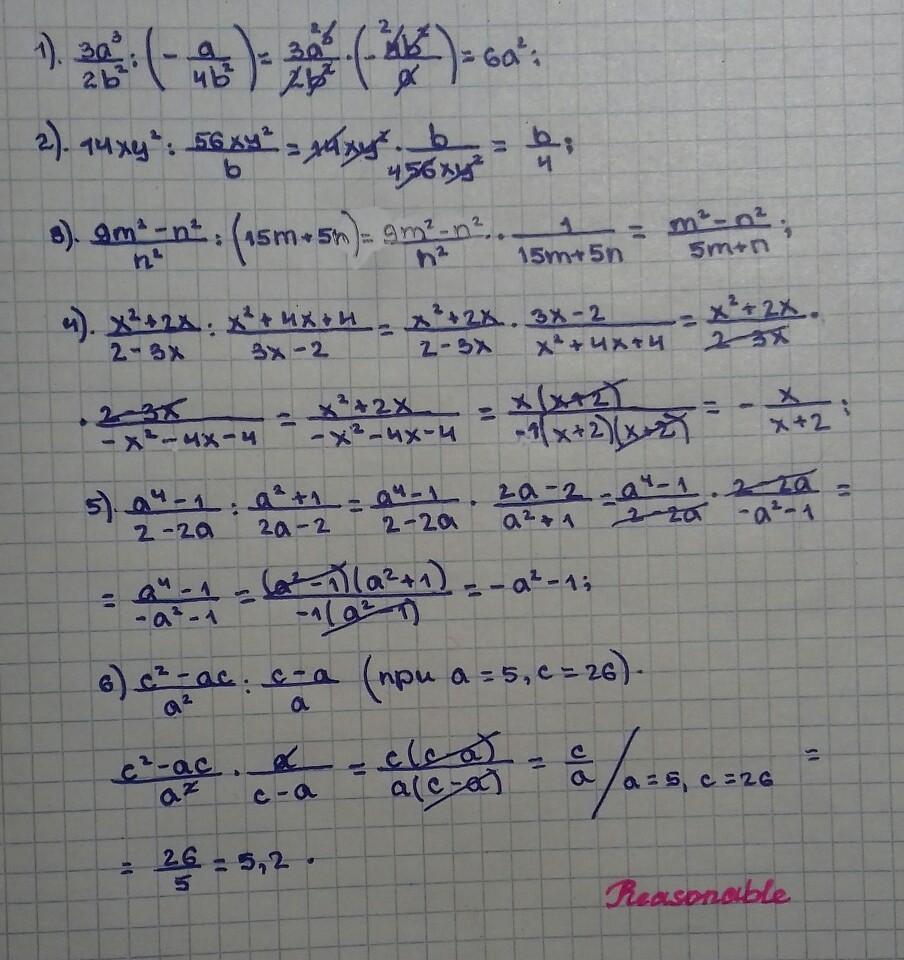 1). 3a³/2b² : (- a/4b²) = 3a³/2b² · (- 4b²/a) = 6a²;
2). 14xy² : 56xy²/b = 14xy² · b/56xy² = b/4;
3). 9m²-n²/n² : (15m+5n) = 9m²-n²/n² · 1/15m+5n = m²-n²/5m+n;
4). x²+2x/2-3x : x²+4x+4/3x-2 = x²+2x/2-3x · 3x-2/x²+4x+4 = x²+2x/2-3x ·
· 2-3x/-x²-4x-4 = x²+2x/-x²-4x-4 = x(x+2)/-1(x+2)(x+2) = - x/x+2;
5). a⁴-1/2-2a : a²+1/2a-2 = a⁴-1/2-2a · 2a-2/a²+1 = a⁴-1/2-2a · 2-2a/-a²-1 =
= a⁴-1/-a²-1 = (a²-1)(a²+1)/-1(a²-1) = -a²-1;
6) c²-ac/a² : c-a/a (при a=5, c=26).
c²-ac/a² · a/c-a = c(c-a)/a(c-a) = c/a / a=5, c=26 =
= 26/5 = 5,2.
Reasonable